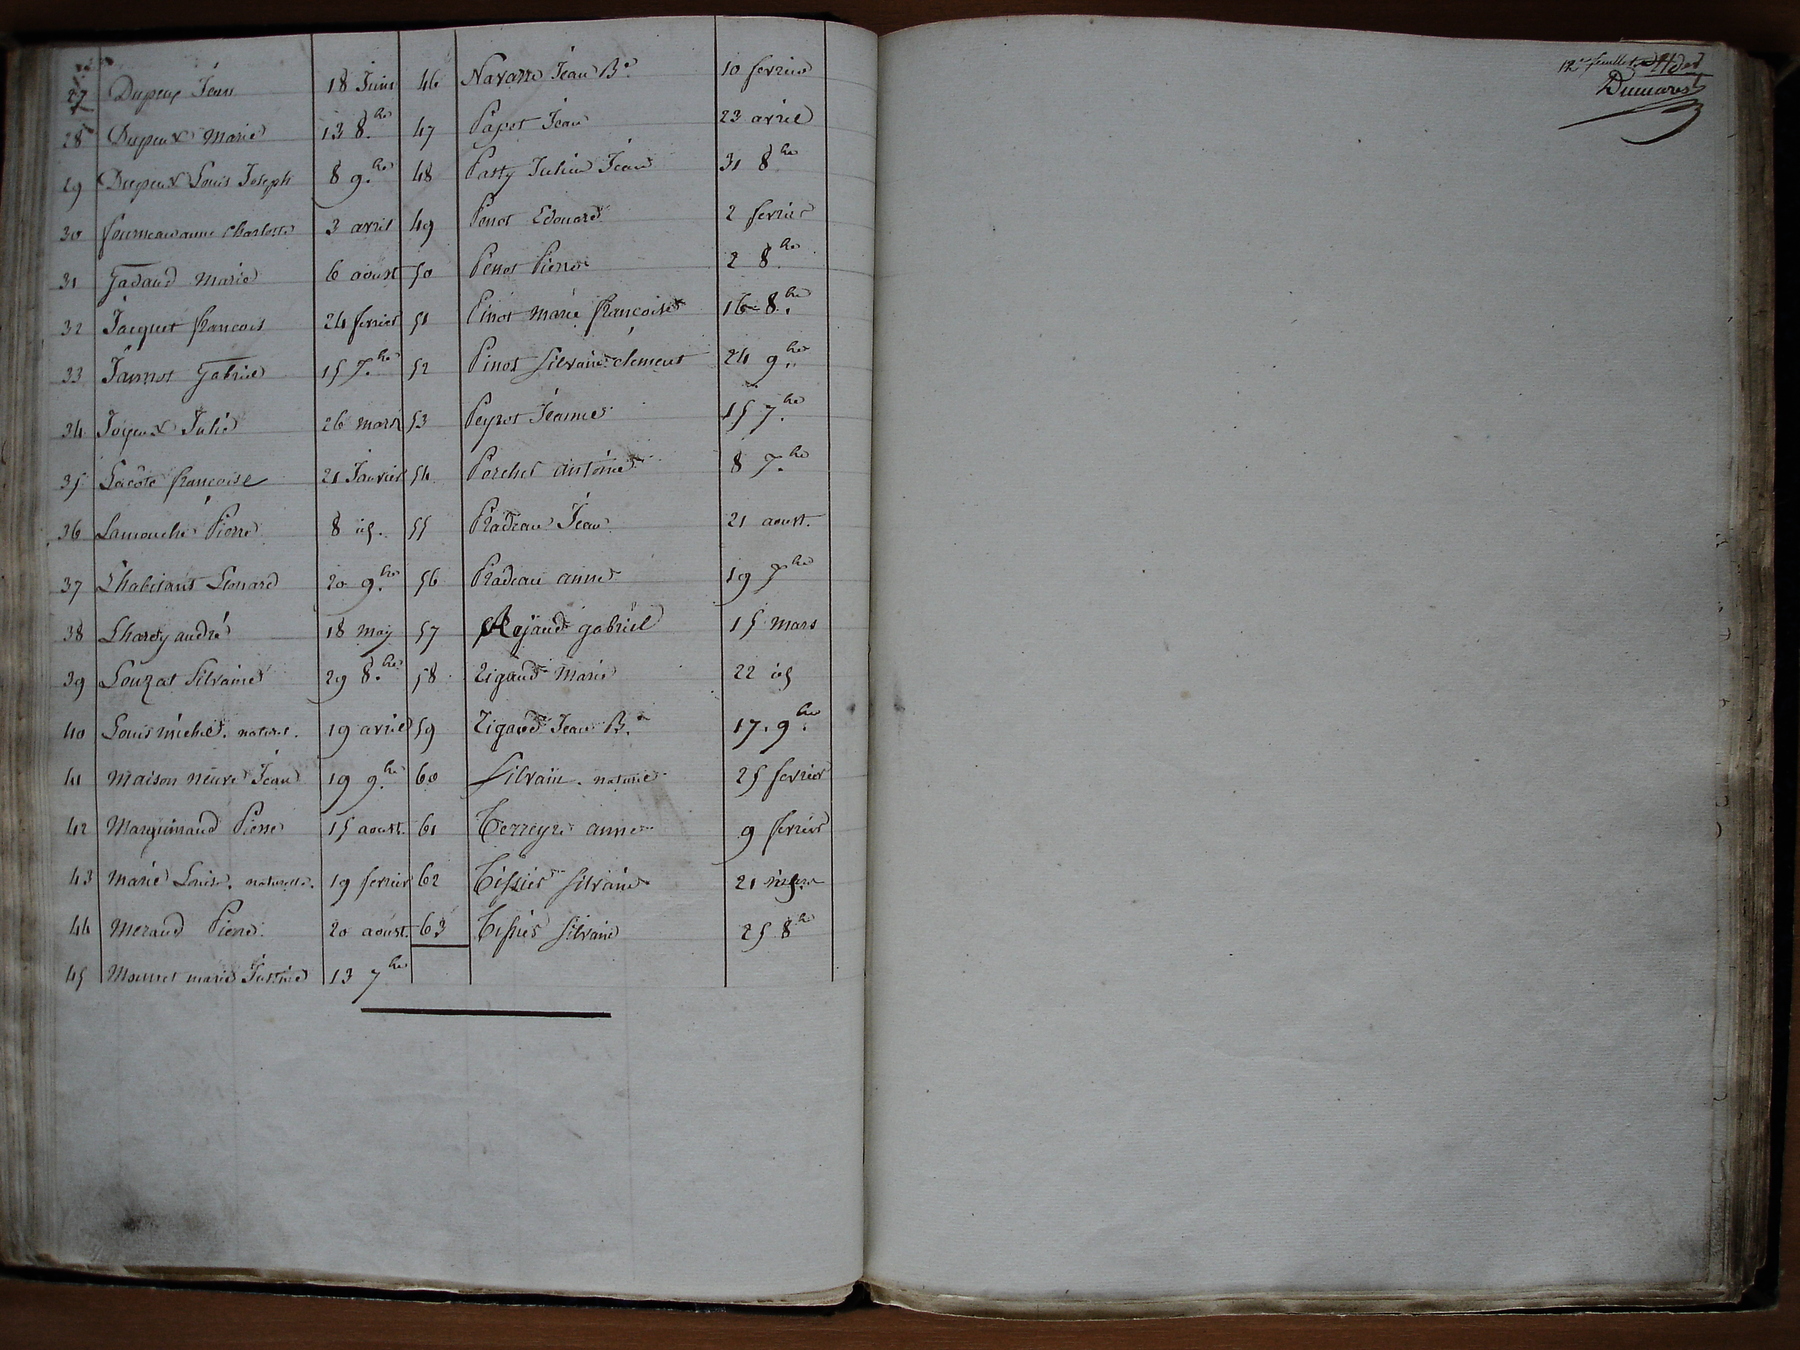 27 Dupeux Jean 18 Juin
28 Dupeux Marie 13 8.bre
29 Dupeux Louis Joseph 8 9.bre
30 fourneau anne Charlotte 3 avril
31 Gadaud Marie 6 aoust
32 Jacquet francois 24 fevrier
33 Jannot Gabriel 15 7.bre
34 Joyeux Julie 26 mars
35 Lacôte francoise 21 Janvier
36 Lamouche Pierre 8 id.
37 L'habitant Léonard 20 9.bre
38 Lhardy andré 18 may
39 Louzat Silvaine 29 8.bre
40 Louis michel. naturel. 19 avril
41 Maison neuve Jean 19 9.bre
42 Marquinaud Pierre 15 aoust.
43 Marie Louise. naturelle. 19 fevrier
44 Meraud Pierre 20 aoust.
45 Mournet marie Justine 13 7bre
46 Navarre Jean B.te 10 fevrier
47 Papot Jean 23 avril
48 Patty Julien Jean 31 8bre
49 Penot Edouard 2 fevrier
50 Penot Pierre 2 8.bre
51 Pinot marie francoise 16 8.bre
52 Pinot Silvain clement 24 9.bre
53 Peyrot Jeanne 15 7.bre
54 Porcher antoine 8 7.bre
55 Pradeau Jean 21 aoust.
56 Pradeau anne 19 7bre
57 Rejaud gabriel 15 mars
58 Rigaud Marie 22 id
59 Rigaud Jean B.te 17. 9.bre
60 Silvain. naturel 25 fevrier
61 Terreyre anne 9 fevrier
62 Tissier Silvain 21
63 Tissier Silvain 25 8bre
12e feuillet
Dumarest